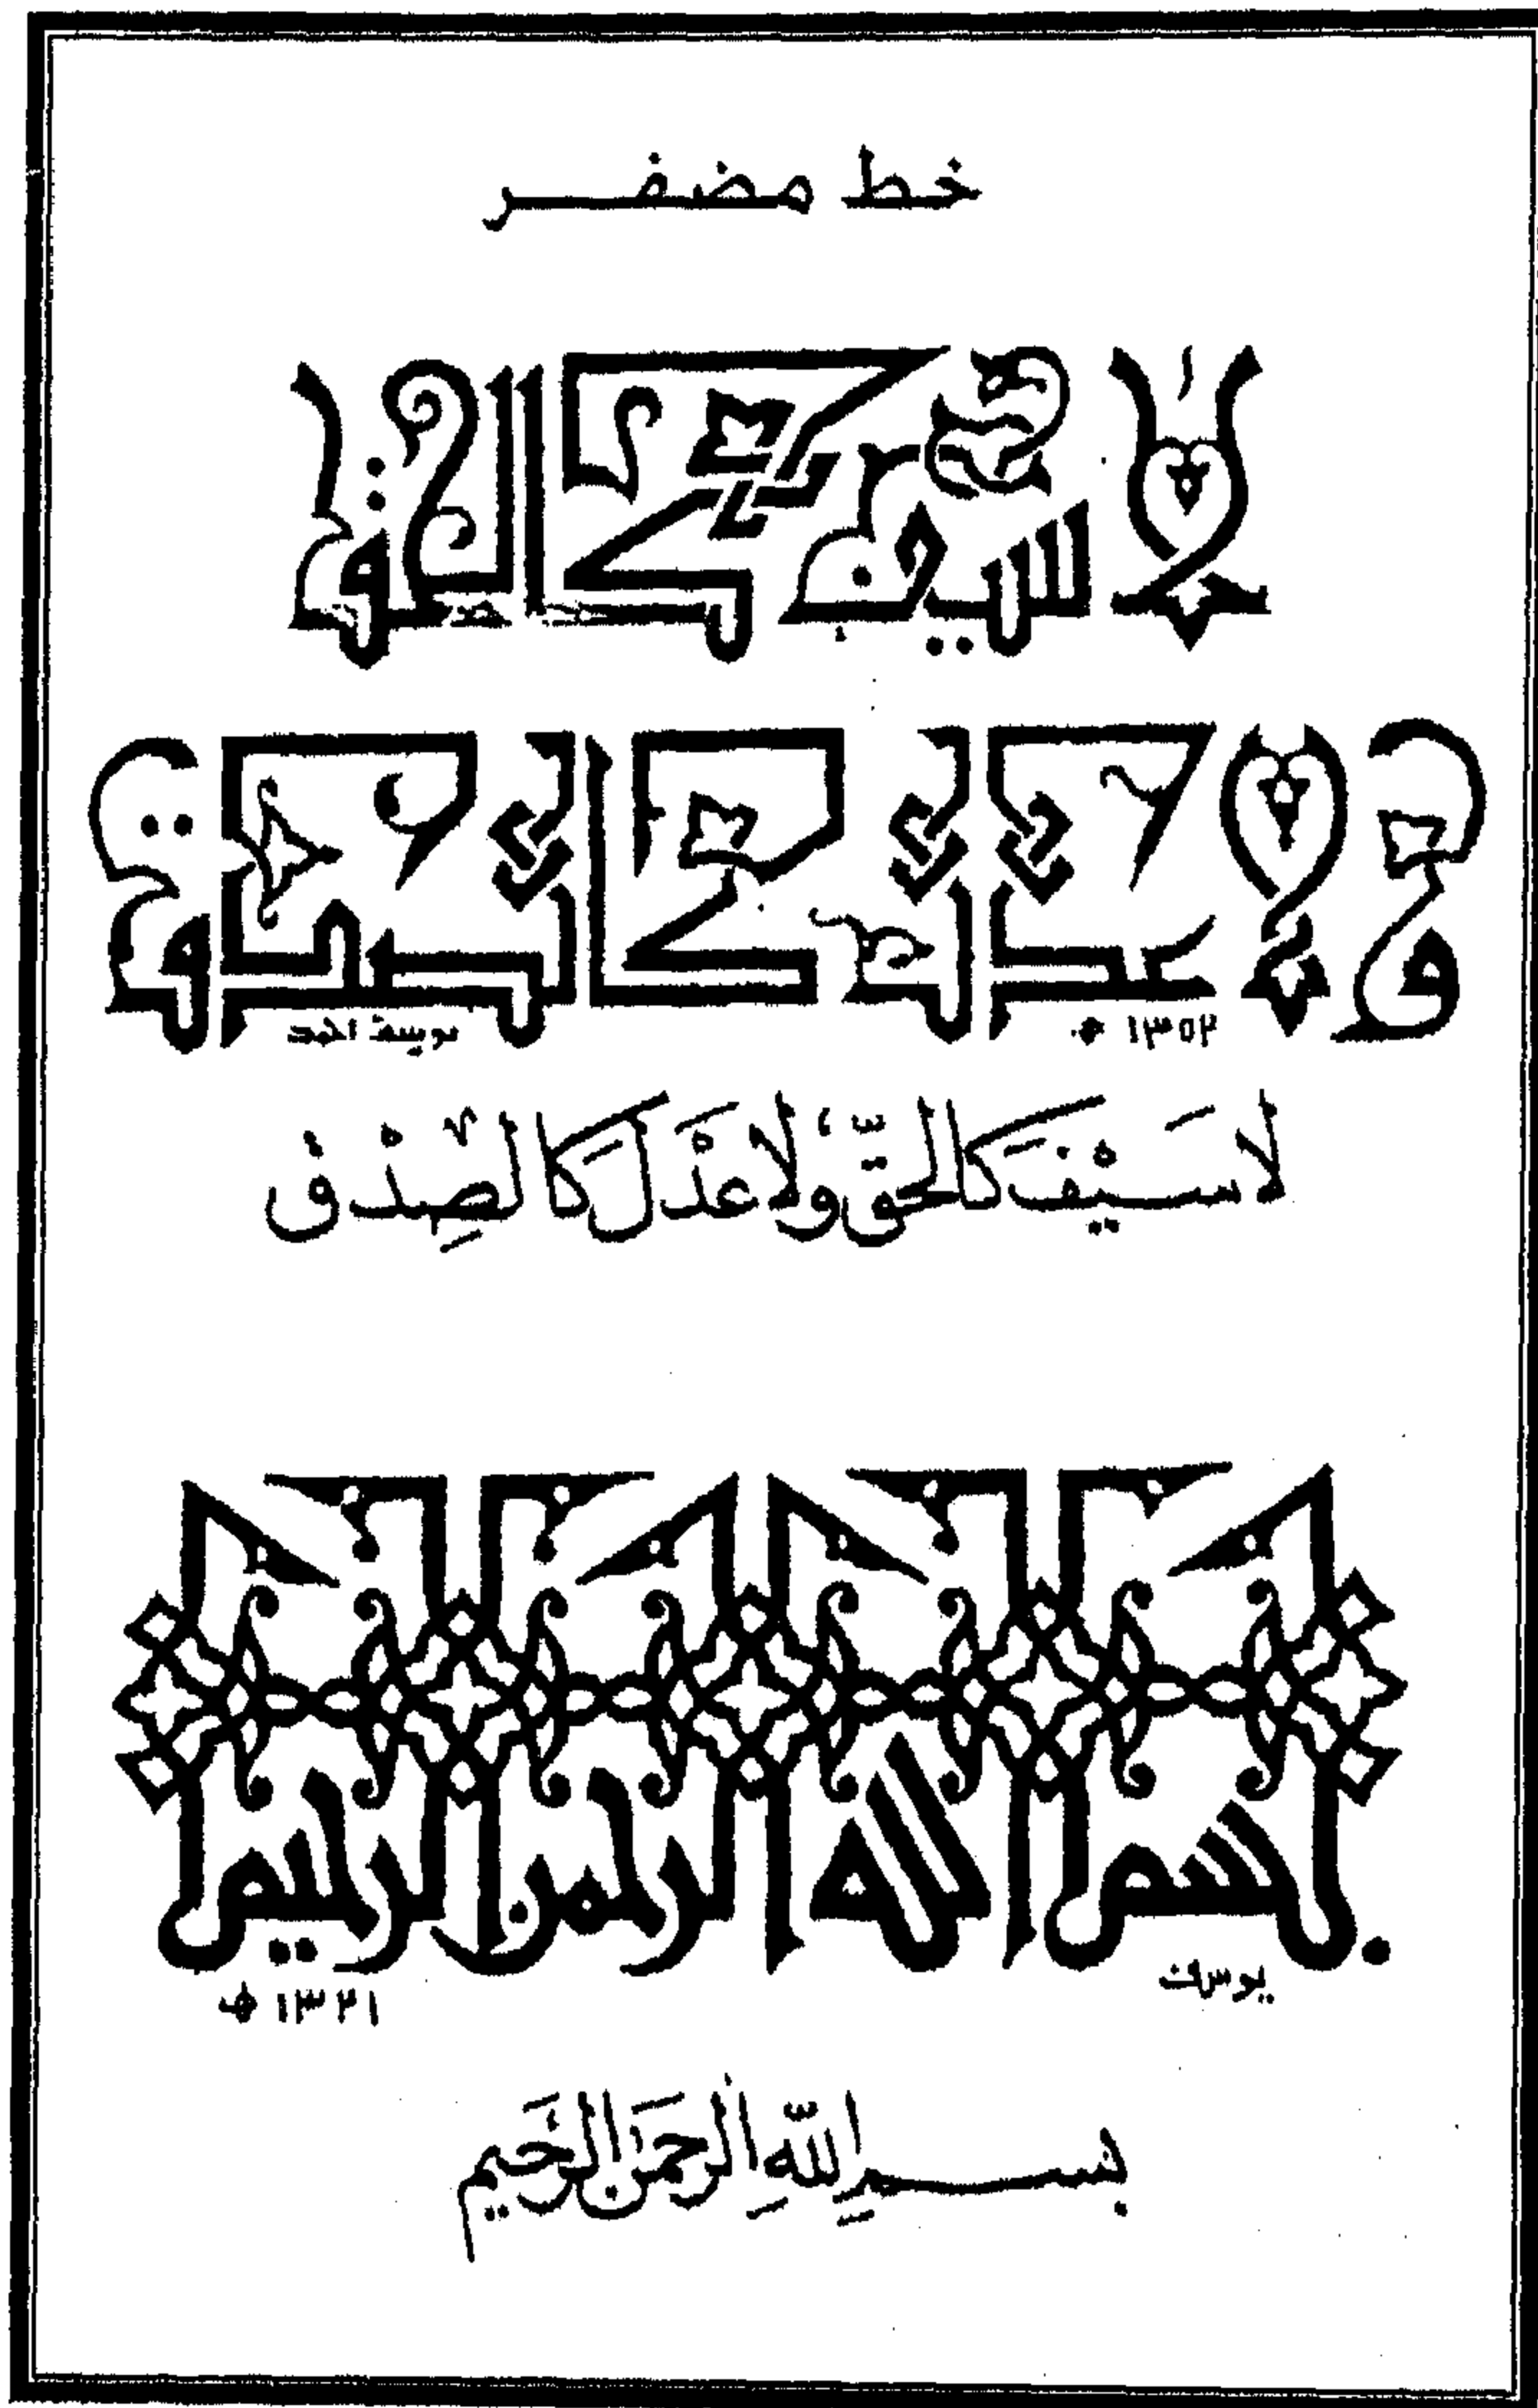 خط مضفر
لا سيف كالحق
ولا عدل كالصدق
١٣٥٢ هـ يوسف احمد
لَا سَيْفَ كَالْحَقِّ وَلَا عَدْلَ كَالصِّدْقْ
بسم الله الرحمن الرحيم
يوسف ١٣٢١ هـ
بِسْمِ اللَّهِ الرَّحْمَنِ الرَّحِيمِ